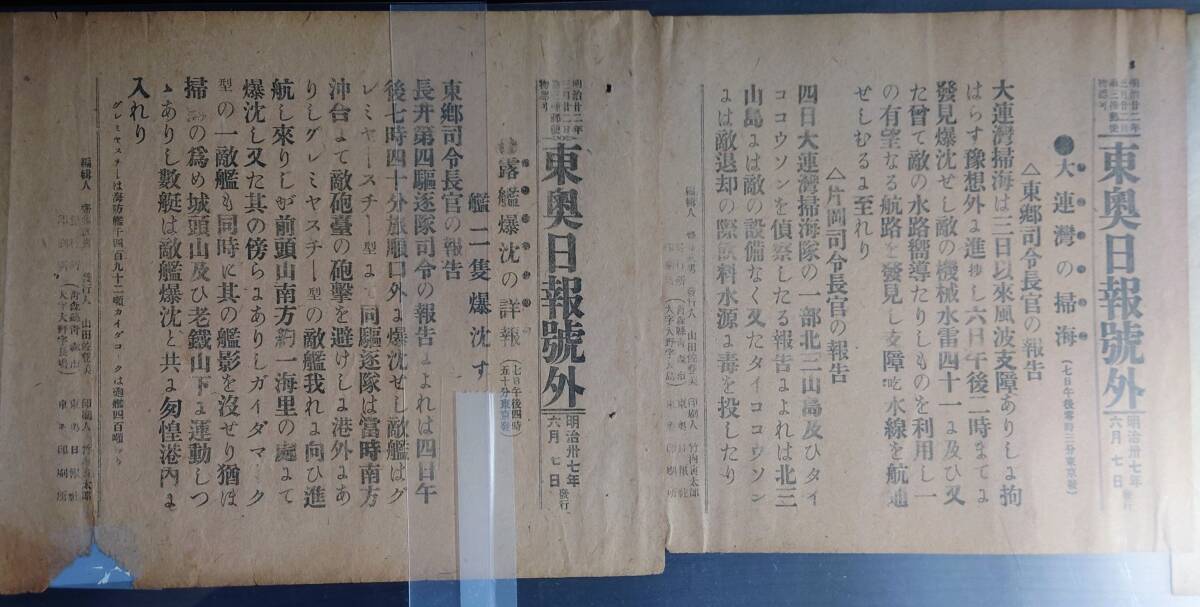 明治廿二年
三月廿二日
第三種郵便
物認可
東奥日報號外
明治卅七年
六月七日
發行
●大連灣の掃海
(七日午後零時三分東京發)
△東郷司令長官の報告
大連灣掃海は三日以來風波支障ありしに拘
はらす豫想外に進捗し六日午後二時まてに
發見爆沈せし敵の機械水雷四十一に及ひ又
た曾て敵の水路嚮導たりしものを利用し一
の有望なる航路を發見し支障吃水線を航通
せしむるに至れり
△片岡司令長官の報告
四日大連灣掃海隊の一部北三山島及ひタイ
ココウソンを偵察したる報告によれは北三
山島には敵の設備なく又たタイココウソン
には敵退却の際飲料水源に毒を投したり
編輯人
發行人 山田佐登美
印刷人 竹内清太郎
發行所
(青森縣青森市
大字大野字長島)
東奥日報社
印刷所
東奥印刷所
明治廿二年
三月廿二日
第三種郵便
物認可
東奥日報號外
明治卅七年
六月七日
發行
露艦爆沈の詳報
(七日午後四時
五十分東京發)
艦二隻爆沈す
東郷司令長官の報告
長井第四驅逐隊司令の報告によれは四日午
後七時四十分旅順口外に爆沈せし敵艦はグ
レミヤースチー型にて同驅逐隊は當時南方
沖合にて敵砲臺の砲擊を避けしに港外にあ
りしグレミヤスチー型の敵艦我れに向ひ進
航し來りしが前頭山南方約一海里の處にて
爆沈し又た其の傍らにありしガイダマーク
型の一敵艦も同時に其の艦影を沒せり猶ほ
掃海の爲め城頭山及ひ老鐵山下に運動しつ
ゝありし數艇は敵艦爆沈と共に匆惶港內に
入れり
グレミヤスチーは海防艦千四百九十二噸ガイダマークは砲艦四百噸なり
編輯人
發行人 山田佐登美
印刷人 竹内清太郎
發行所
(青森縣青森市
大字大野字長嶋)
東奥日報社
印刷所
東奥印刷所